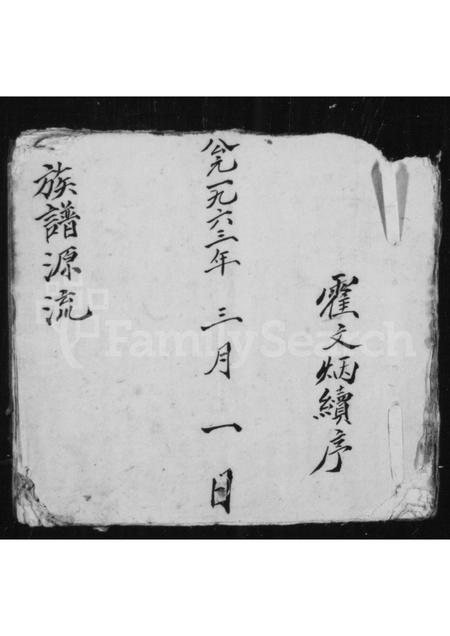 霍文炳續序
公元一九六三年 三月 一日
族譜源流
FamilySearch